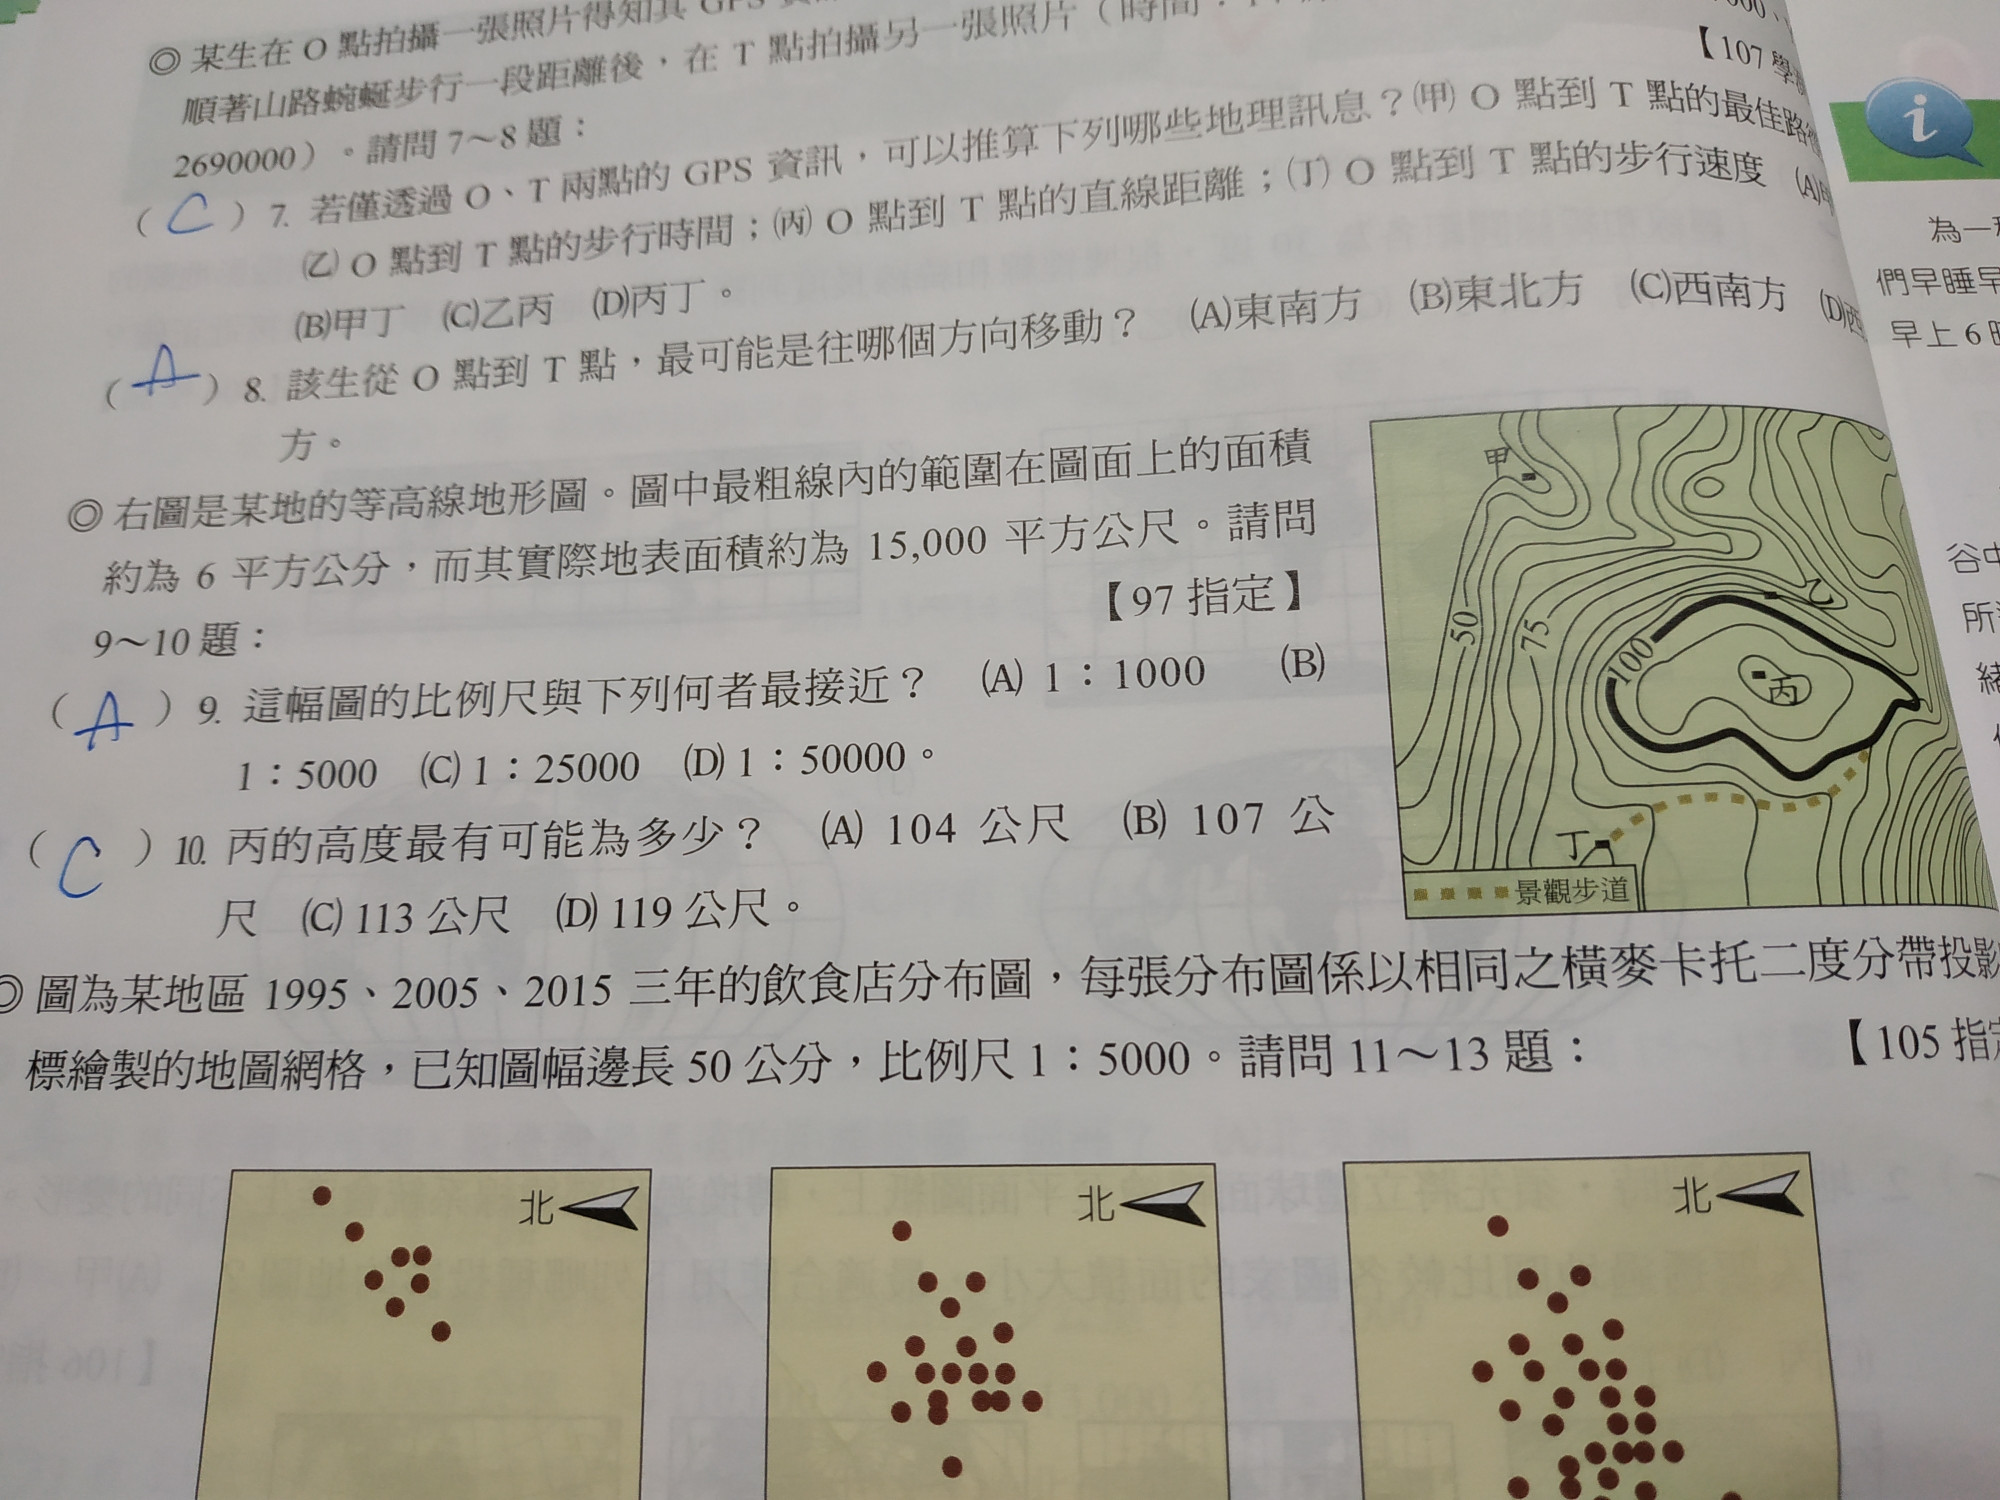 ◎某生在 O 點拍攝一張照片得知其 GPS
順著山路蜿蜒步行一段距離後，在 T 點拍攝另一張照片（時間：
2690000）。請問 7～8 題：
【107 學
( C ) 7. 若僅透過 O、T 兩點的 GPS 資訊，可以推算下列哪些地理訊息？(甲) O 點到 T 點的最佳路
(乙) O 點到 T 點的步行時間；(丙) O 點到 T 點的直線距離；(丁) O 點到 T 點的步行速度 (A)
(B)甲丁 (C)乙丙 (D)丙丁。
( A ) 8. 該生從 O 點到 T 點，最可能是往哪個方向移動？ (A)東南方 (B)東北方 (C)西南方 (D)西
方。
◎右圖是某地的等高線地形圖。圖中最粗線內的範圍在圖面上的面積
約為 6 平方公分，而其實際地表面積約為 15,000 平方公尺。請問
9～10 題：
【97 指定】
( A ) 9. 這幅圖的比例尺與下列何者最接近？ (A) 1：1000 (B)
1：5000 (C) 1：25000 (D) 1：50000。
( C ) 10. 丙的高度最有可能為多少？ (A) 104 公尺 (B) 107 公
尺 (C) 113 公尺 (D) 119 公尺。
甲
乙
50
75
100
丙
丁
景觀步道
◎圖為某地區 1995、2005、2015 三年的飲食店分布圖，每張分布圖係以相同之橫麥卡托二度分帶投影
標繪製的地圖網格，已知圖幅邊長 50 公分，比例尺 1：5000。請問 11～13 題：
【105 指定
北
北
北
i
為一
們早睡早
早上 6 時
谷中
所
緒